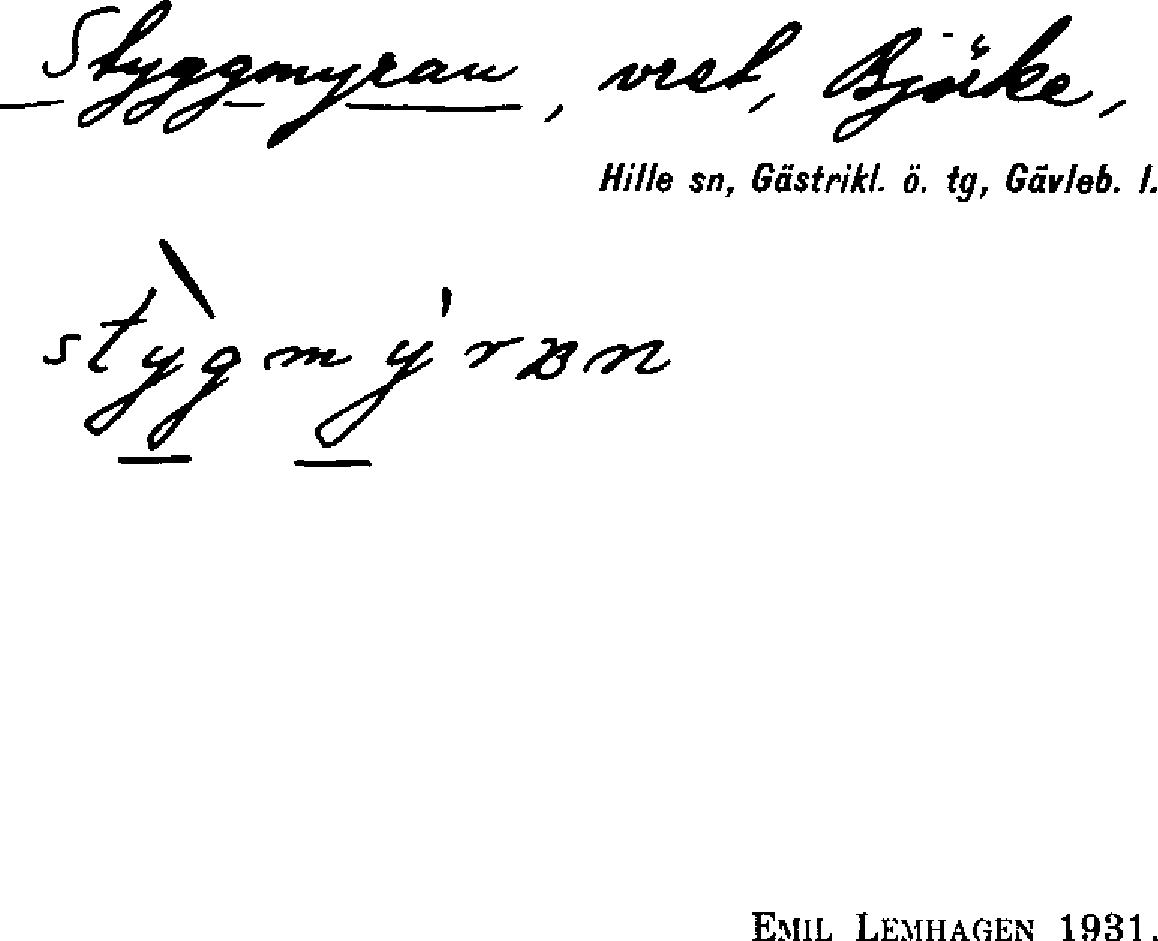 Styggmyran, vret, Björke,
Hille sn, Gästrikl. ö. tg, Gävleb. l.
EMIL LEMHAGEN 1931.